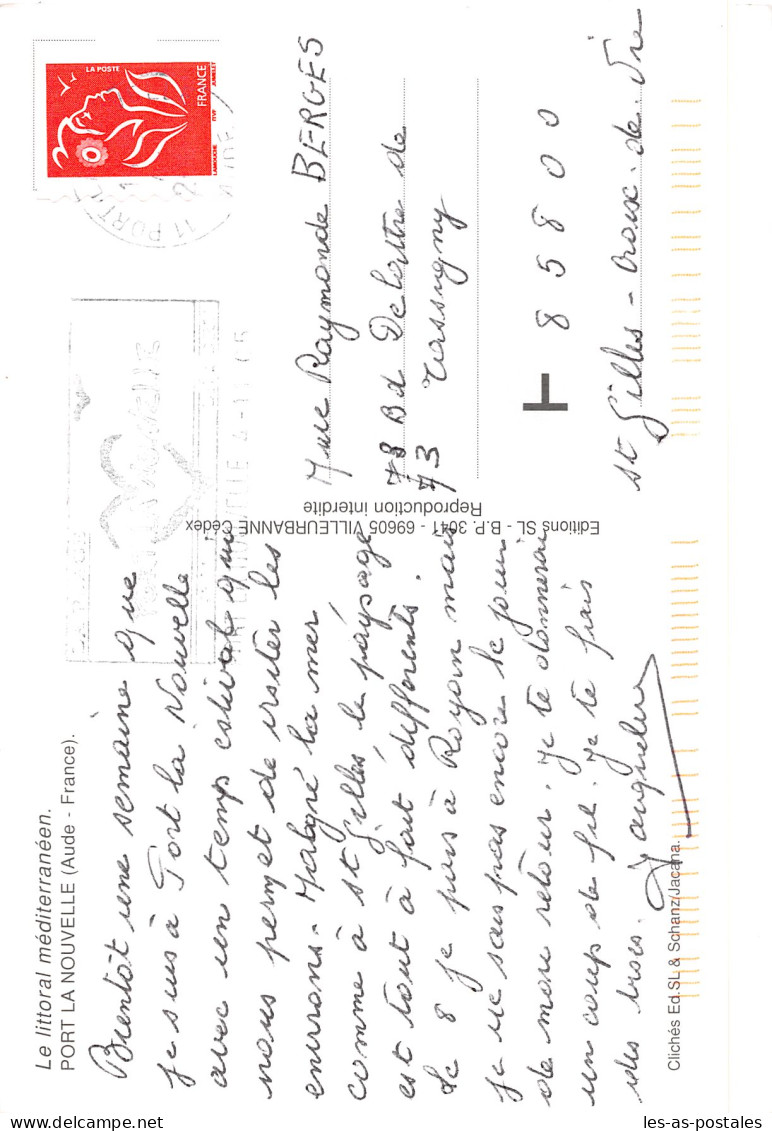 Le littoral méditerranéen.
PORT LA NOUVELLE (Aude - France).
Brentôt une semaine que
je suis à Port la Nouvelle
avec un temps estival qui
nous permet de visiter les
environs. Malgré la mer
comme à st Gilles le paysage
est tout à fait différents.
Le 8 je pars à Royan mais
je ne sais pas encore le jour
de mon retour. Je te donnerai
un coup de fil. Je te fais
des bises. Jacqueline
Clichés Ed.SL & Schanz/Jacana.
Editions SL - B.P. 3041 - 69605 VILLEURBANNE Cédex
Reproduction interdite
LA POSTE
FRANCE
LAMOUCHE ITVF
11 PORT
Mme Raymonde BERGES
78 Bd De Lattre de
73 Tassigny
T
85800
st Gilles - Croix. de. Vie
les-as-postales.com